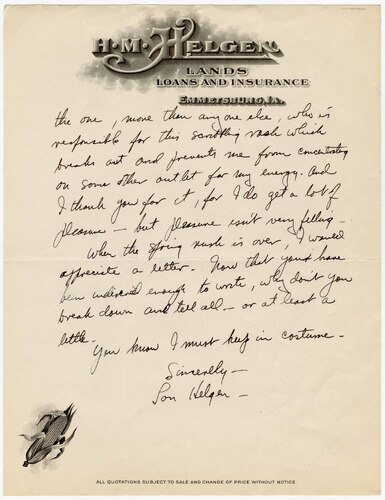 H·M·HELGEN
LANDS
LOANS AND INSURANCE
EMMETSBURG, IA.
the one, more than any one else, who is
responsible for this scribbling rash which
breaks out and prevents me from concentrating
on some other outlet for my energy. And
I thank you for it, for I do get a lot of
pleasure — but pleasure isn't very filling —
When the spring rush is over, I would
appreciate a letter. Now that you have
been indiscreet enough to write, why don't you
break down and tell all — or at least a
little.
You know I must keep in costume —
Sincerely —
Lon Helgen —
ALL QUOTATIONS SUBJECT TO SALE AND CHANGE OF PRICE WITHOUT NOTICE